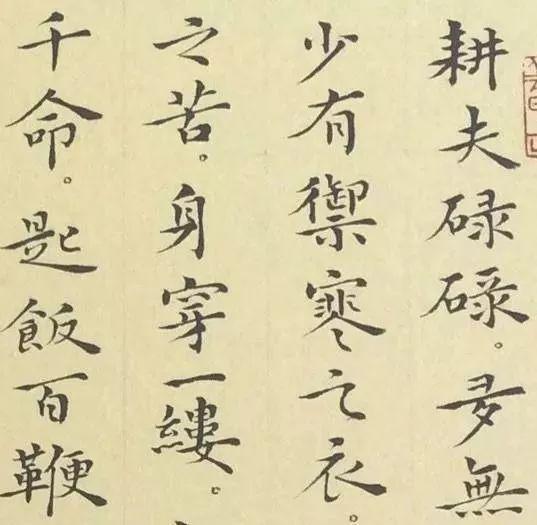 耕夫碌碌。夛無
少有禦寒之衣。
之苦。身穿一縷。
千命。匙飯百鞭